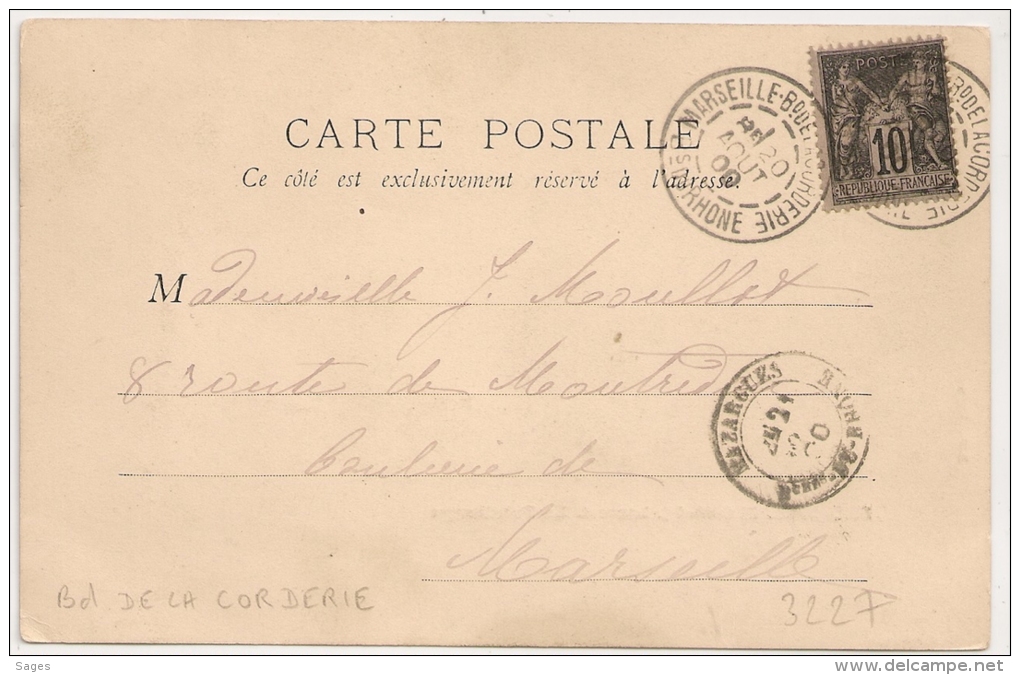 CARTE POSTALE
Ce côté est exclusivement réservé à l'adresse.
MARSEILLE-Bᴰ DE LA CORDERIE
20
AOUT
00
DU RHONE
POSTES
10
REPUBLIQUE FRANÇAISE
Bᴰ DE LA CORDERIE
Mademoiselle J. Moullot
8 route de Montredon
Banlieue de
Marseille
MAZARGUES
21
00
Bd DE LA CORDERIE
3227
Sages
delcampe.net